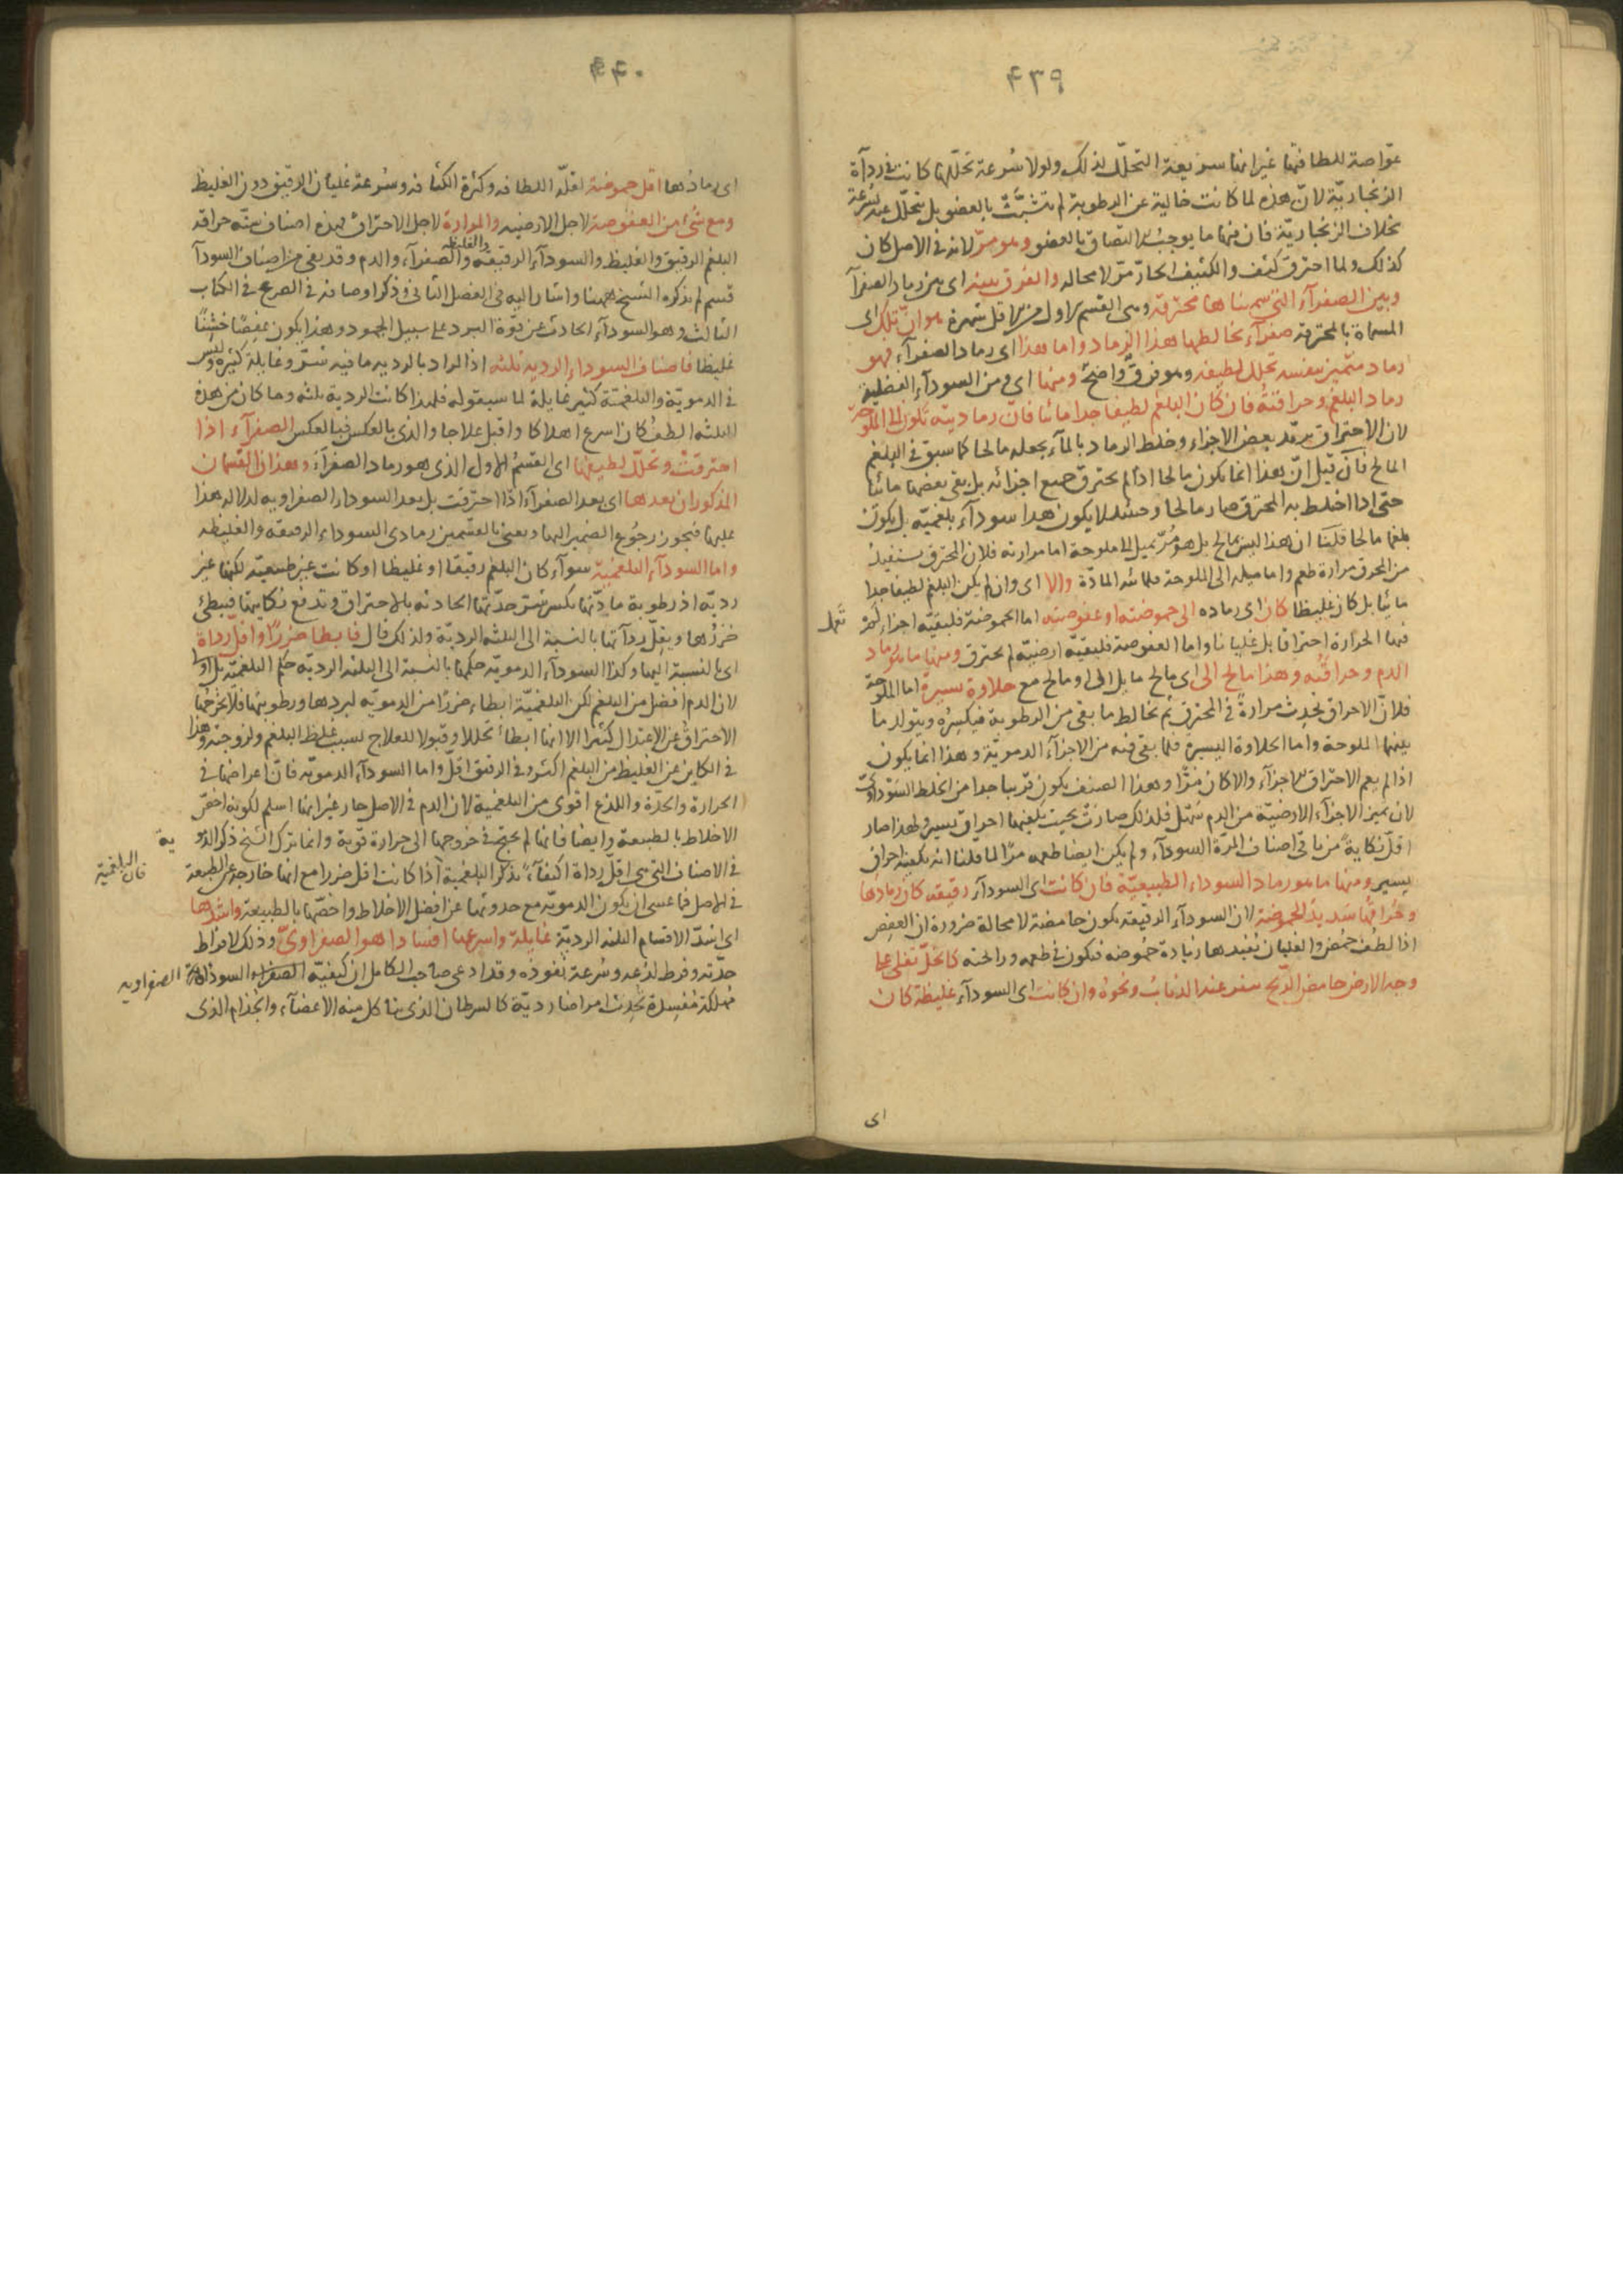 ۴۳۹
غواصة للطافتها غير انها سريعة التحلل لذلك ولولا سرعة تحللها كانت في رداءة
الزنجارية لان هذه لما كانت خالية عن الرطوبة لم تتشبث بالعضو بل يتحلل عنه بسرعة
بخلاف الزنجارية فان فيها ما يوجب التصاق بالعضو وهو مر لانه في الاصل كان
كذلك ولما احترق كثف والكثيف الحار مر لا محالة والفرق بينه اى بين رماد الصفرآ
وبين الصفرآء التي سميناها محترقة وهى القسم الاول من هو ان تلك اى
المسماة بالمحترقة صفرآء يخالطها هذا الرماد واما هذا اى رماد الصفرآء فهو
رماد متميز بنفسه تحلل لطيفه وهو فرق واضح ومنها اى ومن السودآء الفضلية
رماد البلغم وحراقته فان كان البلغم لطيفا جدا مائيا فان رماديته تكون الى الملوحة
لان الاحتراق يرمد بعض الاجزاء وخلط الرماد بالمآء يجعله مالحا كما سبق في البلغم
المالح فان قيل ان هذا انما يكون مالحا اذا لم يحترق جميع اجزائه بل بقى بعضها مائيا
حتى اذا اختلط به المحترق صار مالحا وحينئذ لا يكون هذا سودآء بلغمية بل يكون
بلغما مالحا قلنا ان هذا ليس بمالح بل هو مر يميل الى ملوحة اما مرارته فلان المحترق يستفيد
من الحرق مرارة طعم واما ميله الى الملوحة فلمائية المادة والا اى وان لم يكن البلغم لطيفا جدا
مائيا بل كان غليظا كان اى رماده الى حموضة او عفوصة اما الحموضة فلبقية اجزاء لم
فيها الحرارة احتراقا بل غليانا واما العفوصة فلبقية ارضية لم يحترق ومنها ما هو رماد
الدم وحراقته وهذا مالح الى اى مالح مايل الى او مالح مع حلاوة يسيرة اما الملوحة
فلان الاحراق يحدث مرارة في المحترق ثم يخالط ما بقى من الرطوبة فيكسره ويتولد ما
بينهما الملوحة واما الحلاوة اليسيرة فلما بقى فيه من الاجزآء الدموية وهذا انما يكون
اذا لم يعم الاحتراق الاجزآء والا كان مرا وهذا الصنف يكون قريبا جدا من الخلط السوداوى
لان تميز الاجزآء الارضية من الدم سهل فلذلك صارت بحيث يكفيها احراق يسير ولهذا صار
اقل نكاية من باقى اصناف المرة السودآء ولم يكن ايضا طعمه مرا لما قلنا انه يكفيه احراق
يسير ومنها ما هو رماد السوداء الطبيعية فان كانت اى السودآء رقيقة كان رمادها
وحراقتها شديد الحموضة لان السودآء الرقيقة يكون حامضة لا محالة ضرورة ان العفص
اذا لطف حمض والغليان يفيدها زيادة حموضة فيكون في طعمه ورائحته كالخل تغلى على
وجه الارض حامض الريح ينفر عنه الذباب ونحوه وان كانت اى السودآء غليظة كان
اى
۴۴۰
اى رمادها اقل حموضة لقلة اللطافة وكثرة الكثافة وسرعة غليان الرقيق دون الغليظ
ومع شئ من العفوصة لاجل الارضية والمرارة لاجل الاحتراق فهذه اصناف ستة حراقة
البلغم الرقيق والغليظ والسودآء الرقيقة والغليظة والصفرآء والدم وقد بقى من اصناف السودآ
قسم لم يذكره الشيخ ههنا واشار اليه في الفصل الثانى وذكر اوصافه في الصرع في الكتاب
الثالث وهو السودآء الحادث عن قوة البرد على سبيل الجمود وهذا يكون عفصا خشنا
غليظا فاصناف السوداء الردية ثلثة اذ المراد بالردية ما فيه شر وغايلة كثيرة وليس
في الدموية والبلغمية كثير غايلة لما سيقوله فلهذا كانت الردية ثلثة وما كان من هذه
الثلثة الطف كان اسرع اهلاكا واقبل علاجا والذى بالعكس فبالعكس الصفرآء اذا
احترقت وتحلل لطيفها اى القسم الاول الذى هو رماد الصفرآء وهذان القسمان
المذكوران بعدها اى بعد الصفرآء اذا احترقت بل بعد السوداء الصفراوية لدلالة هذا
عليها فيجوز رجوع الضمير اليها ويعنى بالقسمين رمادى السوداء الرقيقة والغليظة
واما السودآء البلغمية سوآء كان البلغم رقيقا او غليظا او كانت غير طبيعية لكنها غير
ردية اذ رطوبة مادتها يكسر شر حدتها الحادثة بالاحتراق وتدفع نكايتها فيبطئ
ضررها ويقل رداءتها بالنسبة الى الثلثة الردية ولذلك قال فابطا ضررا واقل رداة
اى بالنسبة اليها وكذا السودآء الدموية حكمها بالنسبة الى الثلثة الردية حكم البلغمية بل اولى
لان الدم افضل من البلغم لكن البلغمية ابطاء ضررا من الدموية لبردها ورطوبتها فلا يخرجها
الاحتراق عن الاعتدال كثيرا الا انها ابطأ تحللا وقبولا للعلاج بسبب غلظ البلغم ولزوجته وهذا
في الكاين عن الغليظ من البلغم اكثر وفي الرقيق اقل واما السودآء الدموية فان اعراضها في
الحرارة والحدة واللذع اقوى من البلغمية لان الدم في الاصل حار غير انها اسلم لكونه اخص
الاخلاط بالطبيعة وايضا فانها لم يحتج في خروجها الى حرارة قوية وانما ترك الشيخ ذكر الدموية
في الاصناف التي هى اقل رداة اكتفآء بذكر البلغمية اذا كانت اقل ضررا مع انها خارجة عن الطبيعة
فان البلغمية
في الاصل فما عسى ان يكون الدموية مع حدوثها عن افضل الاخلاط واخصها بالطبيعة واشدها
اى اشد الاقسام الثلثة الردية غايلة واسرعها افسادا هو الصفراوى وذلك لافراط
حدته وفرط لذعه وسرعة نفوذه وقد ادعى صاحب الكامل ان كيفية السودآء الصفراوية
مهلكة مفسدة تحدث امراضا ردية كالسرطان الذى يتاكل منه الاعضآء والجذام الذى